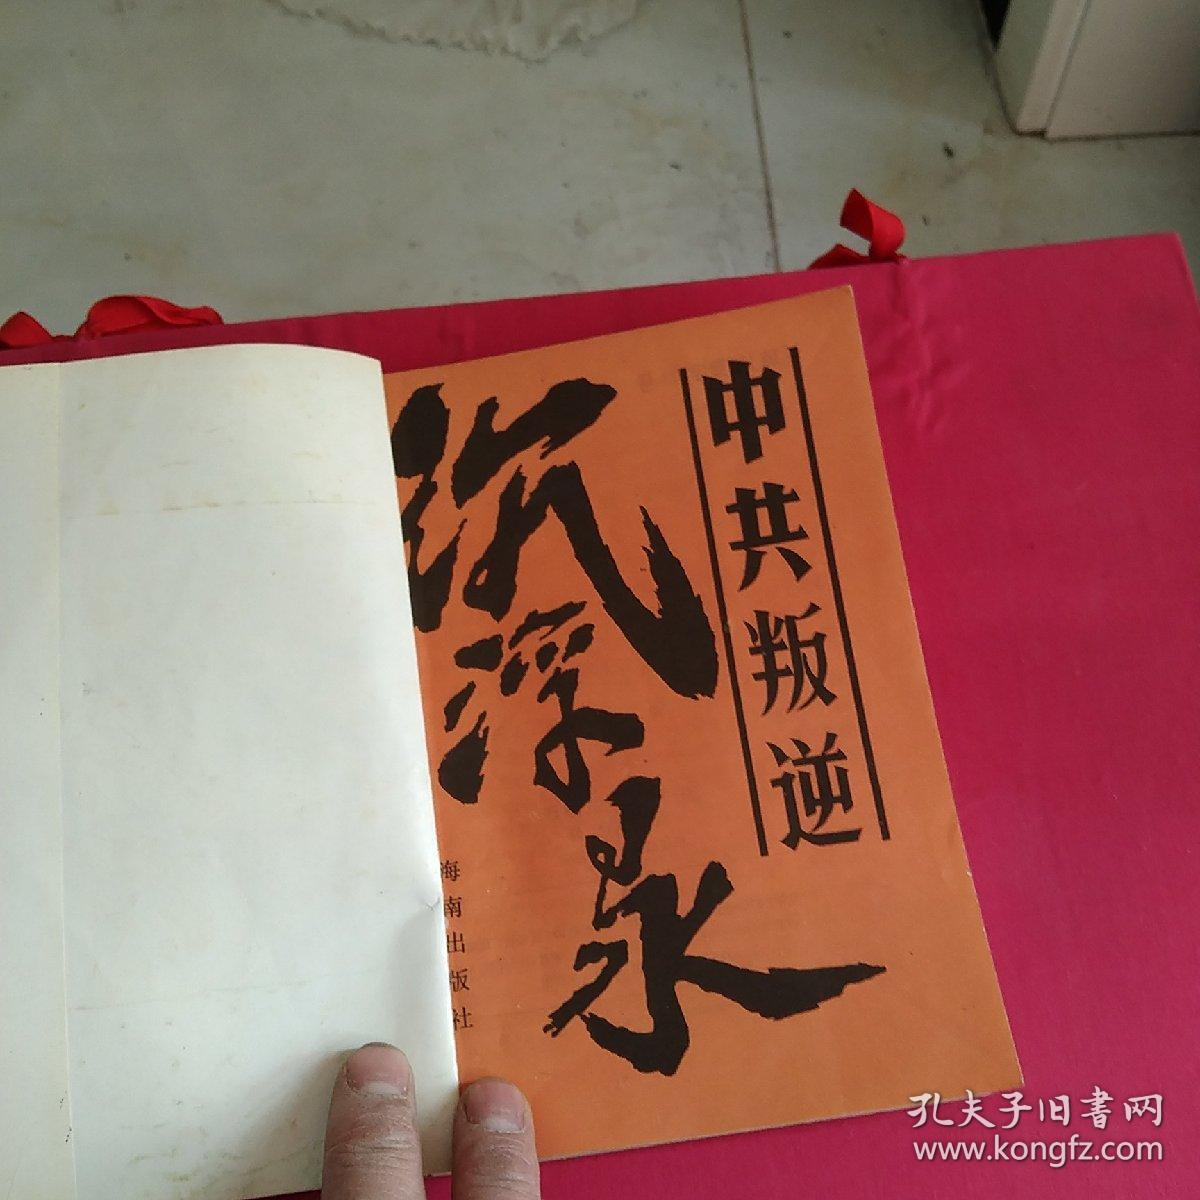 中共叛逆
沉浮录
海南出版社
孔夫子旧書网
www.kongfz.com